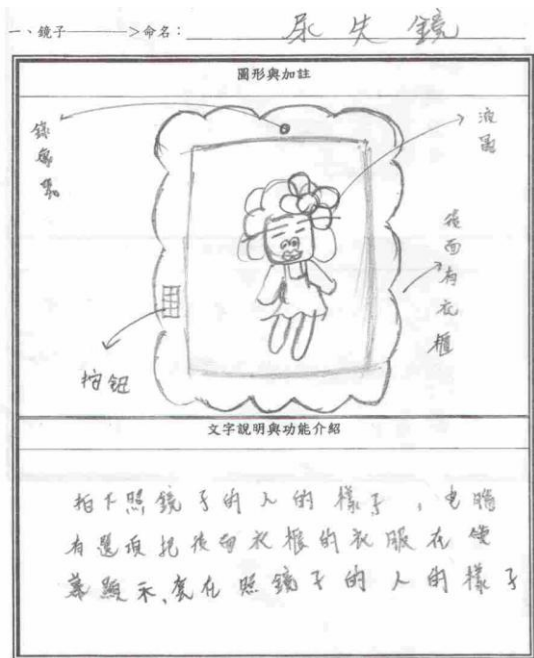 一、鏡子———>命名：尿失鏡
圖形與加註
錄影器
液晶
後面有衣櫃
按鈕
文字說明與功能介紹
拍下照鏡子的人的樣子，电腦
有選項把後面衣櫃的衣服在螢
幕顯示、套在照鏡子的人的樣子